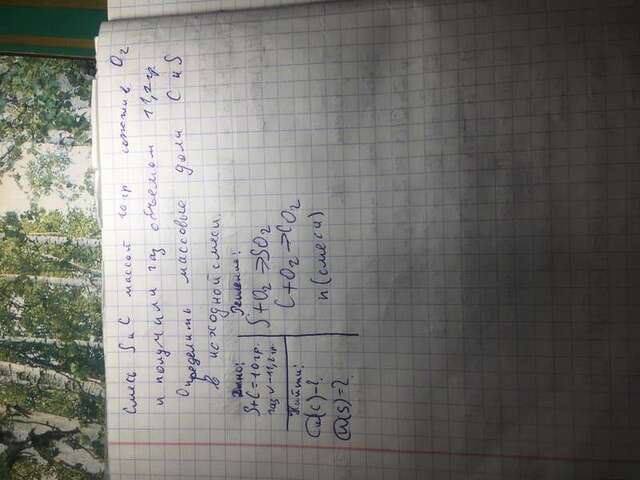 Смесь S и C массой 10 гр сожгли в O2
и получили газ объемом 11,2 гр.
Определить массовые доли C и S
в исходной смеси.
Дано:
S+C=10гр.
газ V=11,2гр
Найти:
ω(C)-?
ω(S)=?
Решение:
S+O2⇒SO2
C+O2⇒CO2
n(смеси)